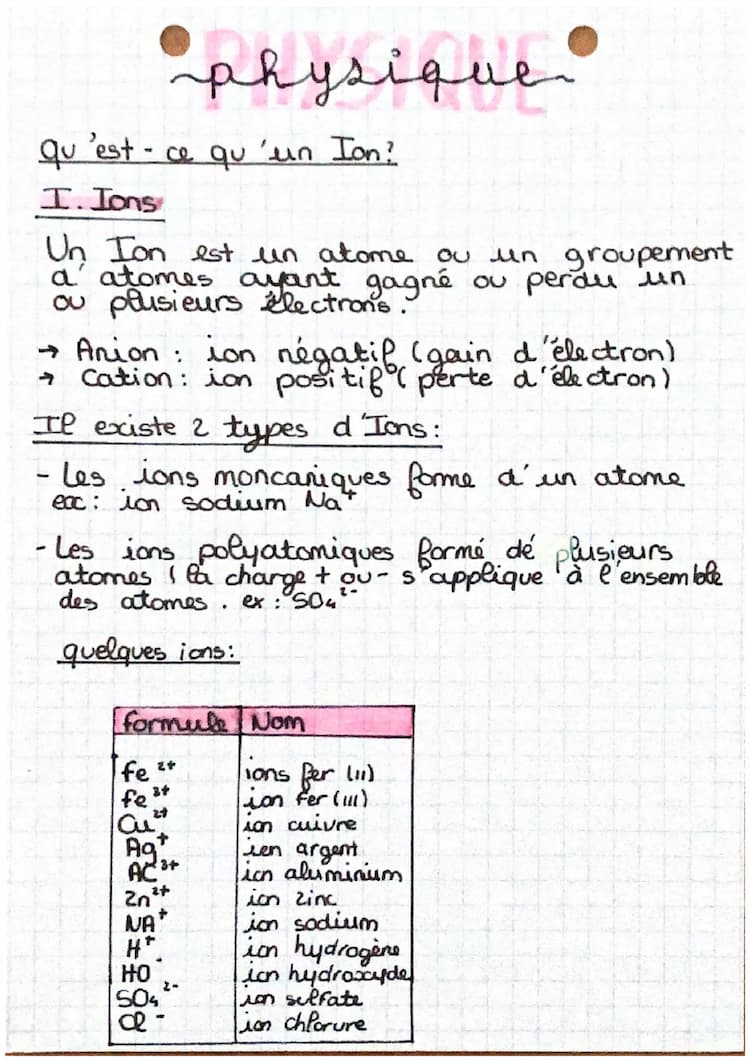 PHYSIQUE
physique
qu'est-ce qu'un Ion?
I. Ions
Un Ion est un atome ou un groupement
d'atomes ayant gagné ou perdu un
ou plusieurs électrons.
→ Anion : ion négatif (gain d'électron)
→ Cation : ion positif (perte d'électron)
Il existe 2 types d'Ions :
- Les ions moncaniques forme d'un atome
ex : ion sodium Na⁺
- Les ions polyatomiques formé de plusieurs
atomes ( la charge + ou - s'applique à l'ensemble
des atomes. ex : SO₄²⁻
quelques ions :
formule Nom
fe²⁺ ions fer (II)
fe³⁺ ion fer (III)
Cu²⁺ ion cuivre
Ag⁺ ion argent
Al³⁺ ion aluminium
Zn²⁺ ion zinc
NA⁺ ion sodium
H⁺ ion hydrogène
HO⁻ ion hydroxyde
SO₄²⁻ ion sulfate
Cl⁻ ion chlorure